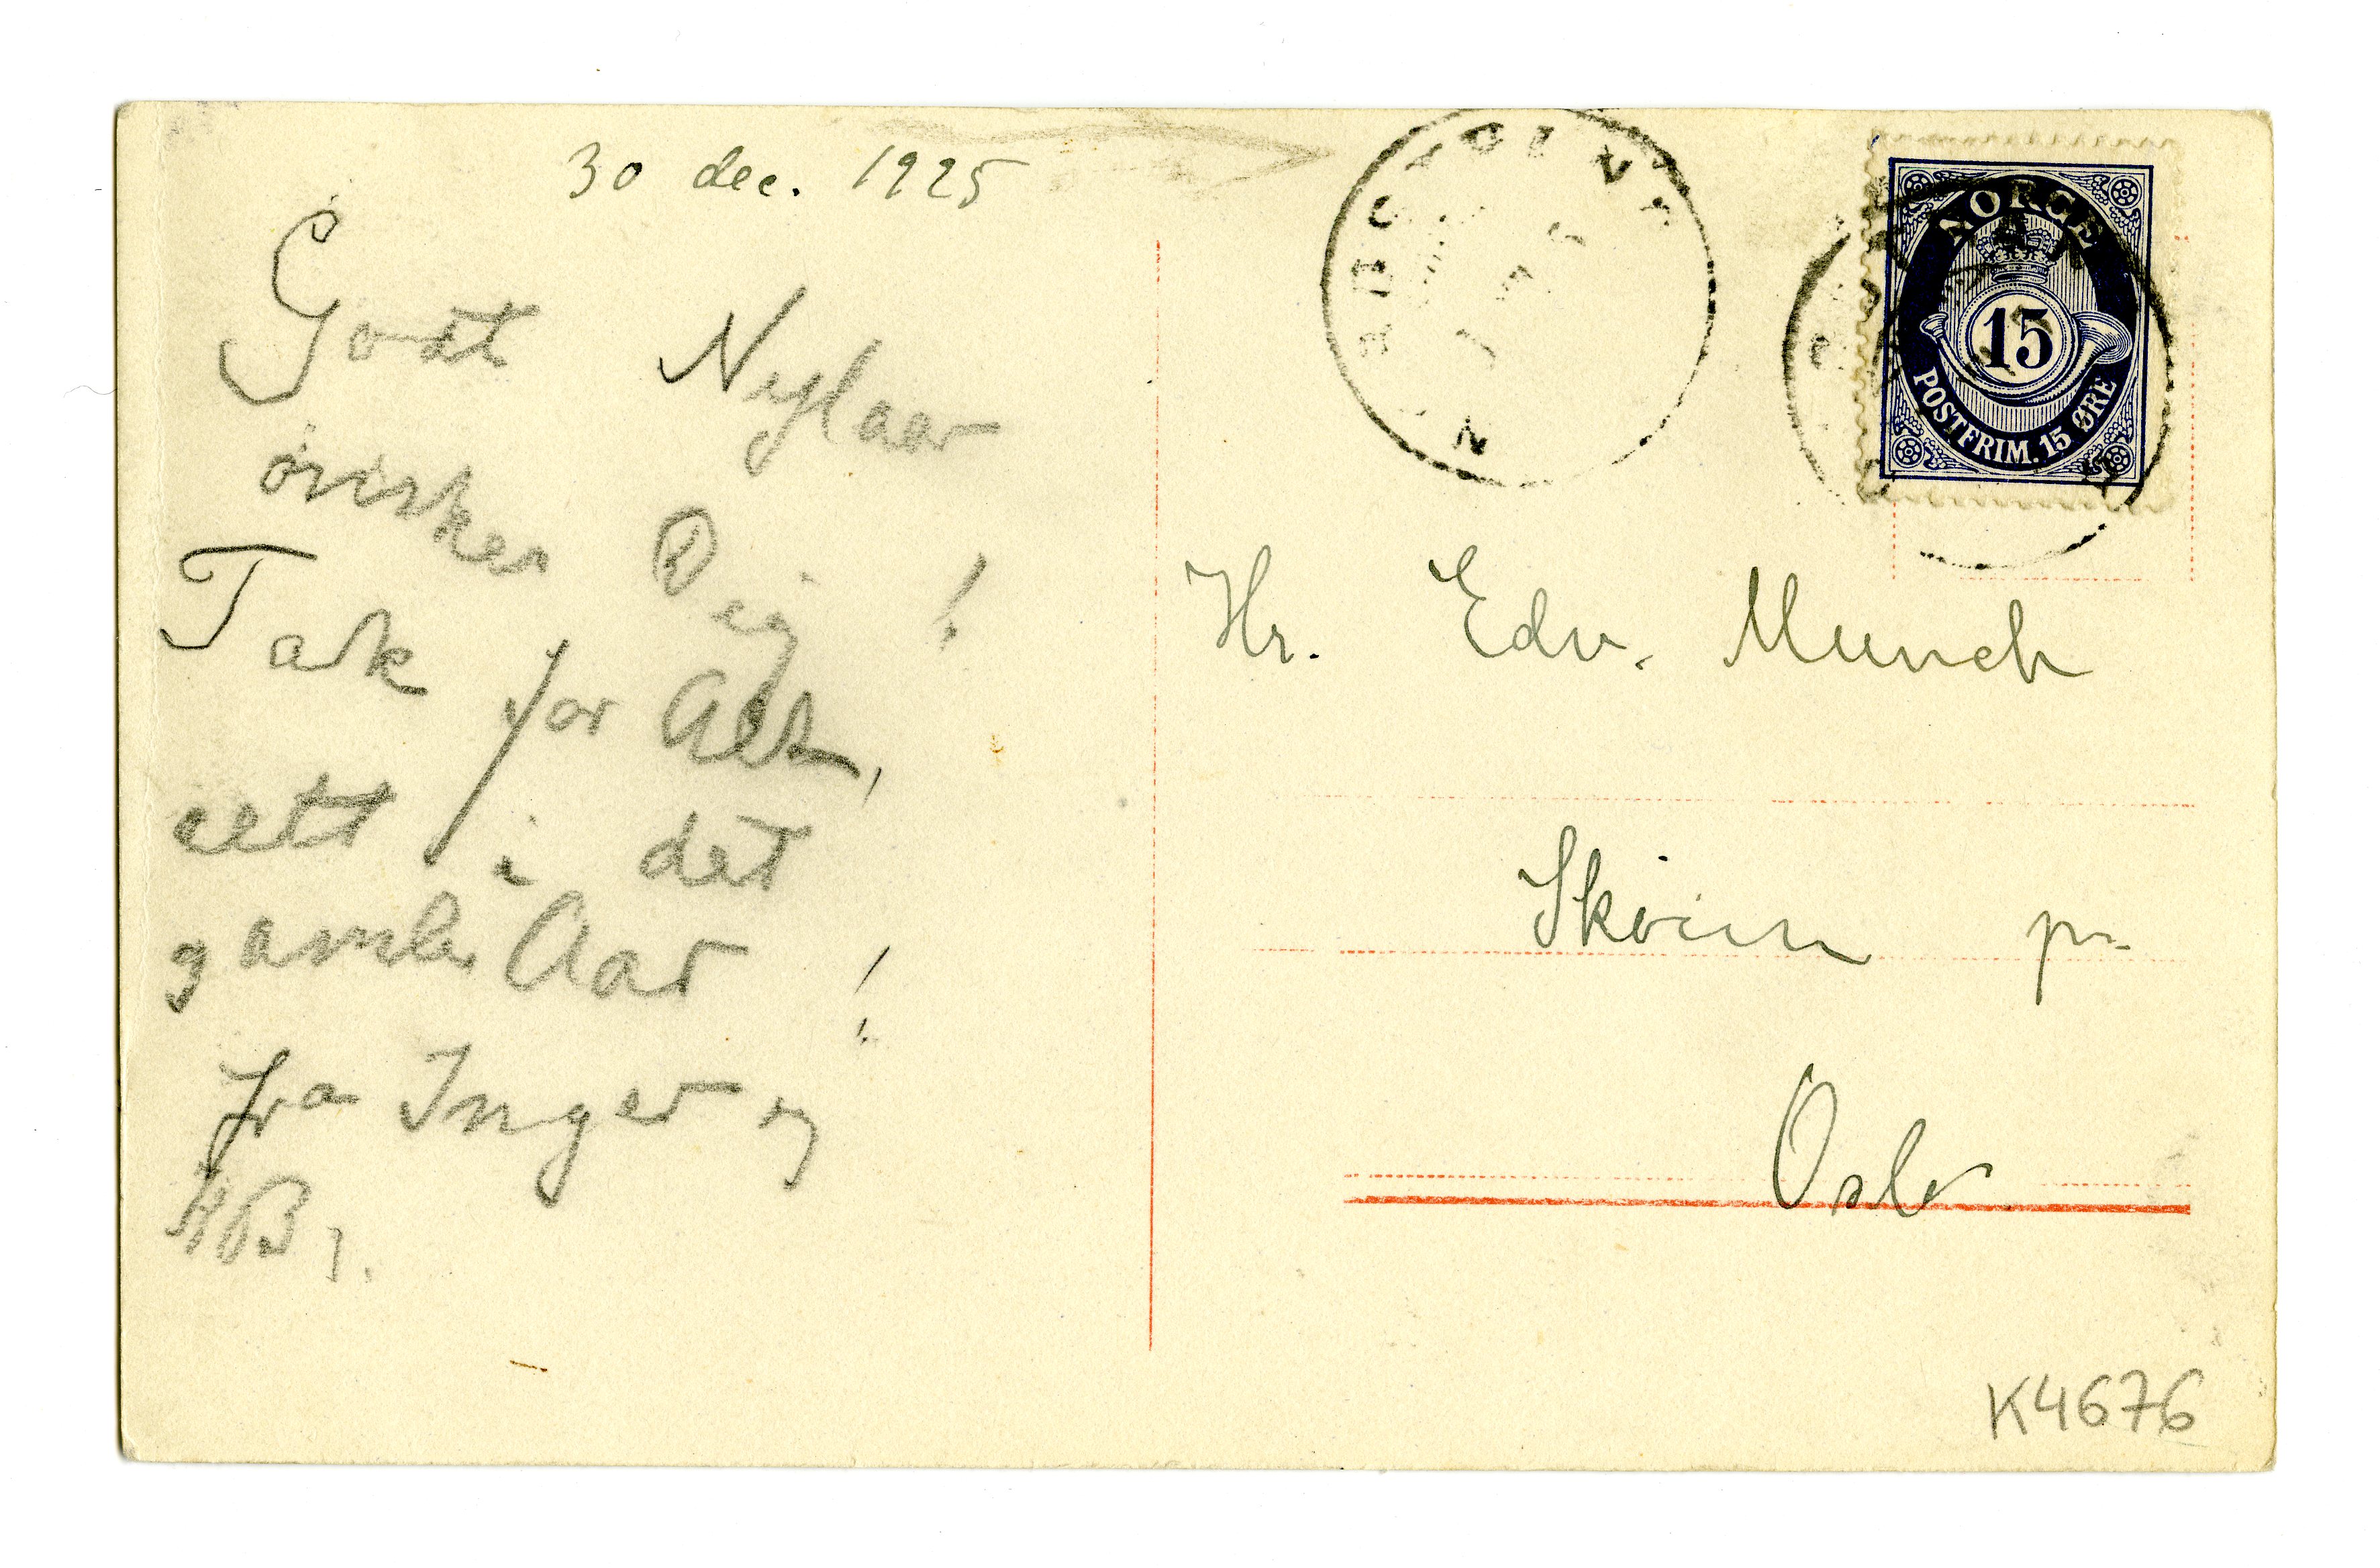 30 dec. 1925
Godt Nytaar
önsker Dig !
Tak for Alt,
alt i det
gamle Aar !
fra Inger og
KB).
NORGE
15
POSTFRIM. 15 ØRE
Hr. Edv. Munch
Sköien pr
Oslo
K4676